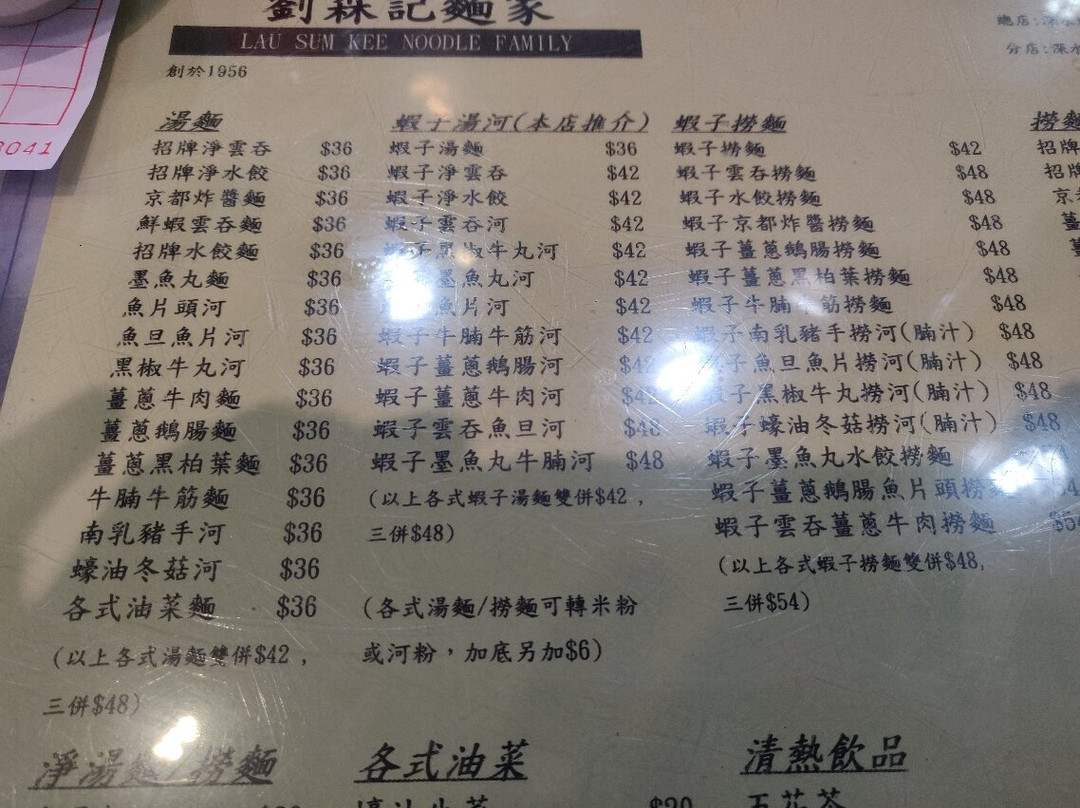 劉森記麵家
LAU SUM KEE NOODLE FAMILY
創於1956
總店:深水
分店:深水
3041
湯麵
招牌淨雲吞 $36
招牌淨水餃 $36
京都炸醬麵 $36
鮮蝦雲吞麵 $36
招牌水餃麵 $36
墨魚丸麵 $36
魚片頭河 $36
魚旦魚片河 $36
黑椒牛丸河 $36
薑蔥牛肉麵 $36
薑蔥鵝腸麵 $36
薑蔥黑柏葉麵 $36
牛腩牛筋麵 $36
南乳豬手河 $36
蠔油冬菇河 $36
各式油菜麵 $36
(以上各式湯麵雙併$42,
三併$48)
蝦子湯河(本店推介)
蝦子湯麵 $36
蝦子淨雲吞 $42
蝦子淨水餃 $42
蝦子雲吞河 $42
子黑椒牛丸河 $42
墨魚丸河 $42
魚片河 $42
蝦子牛腩牛筋河 $42
蝦子薑蔥鵝腸河 $42
蝦子薑蔥牛肉河 $42
蝦子雲吞魚旦河 $48
蝦子墨魚丸牛腩河 $48
(以上各式蝦子湯麵雙併$42,
三併$48)
(各式湯麵/撈麵可轉米粉
或河粉,加底另加$6)
蝦子撈麵
蝦子撈麵 $42
蝦子雲吞撈麵 $48
蝦子水餃撈麵 $48
蝦子京都炸醬撈麵 $48
蝦子薑蔥鵝腸撈麵 $48
蝦子薑蔥黑柏葉撈麵 $48
蝦子牛腩牛筋撈麵 $48
蝦子南乳豬手撈河(腩汁) $48
子魚旦魚片撈河(腩汁) $48
蝦子黑椒牛丸撈河(腩汁) $48
蝦子蠔油冬菇撈河(腩汁) $48
蝦子墨魚丸水餃撈麵
蝦子薑蔥鵝腸魚片頭撈
蝦子雲吞薑蔥牛肉撈麵
(以上各式蝦子撈麵雙併$48,
三併$54)
撈麵
招牌
招牌
京
薑
淨湯麵/撈麵
各式油菜
$20
清熱飲品
五花茶